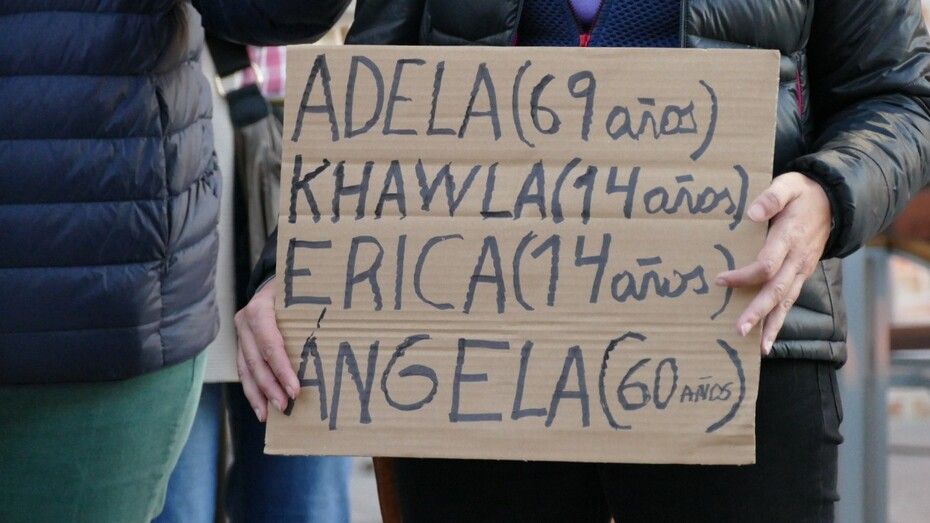 ADELA (69 años)
KHAWLA (14 años)
ÉRICA (14 años)
ÁNGELA (60 AÑOS)